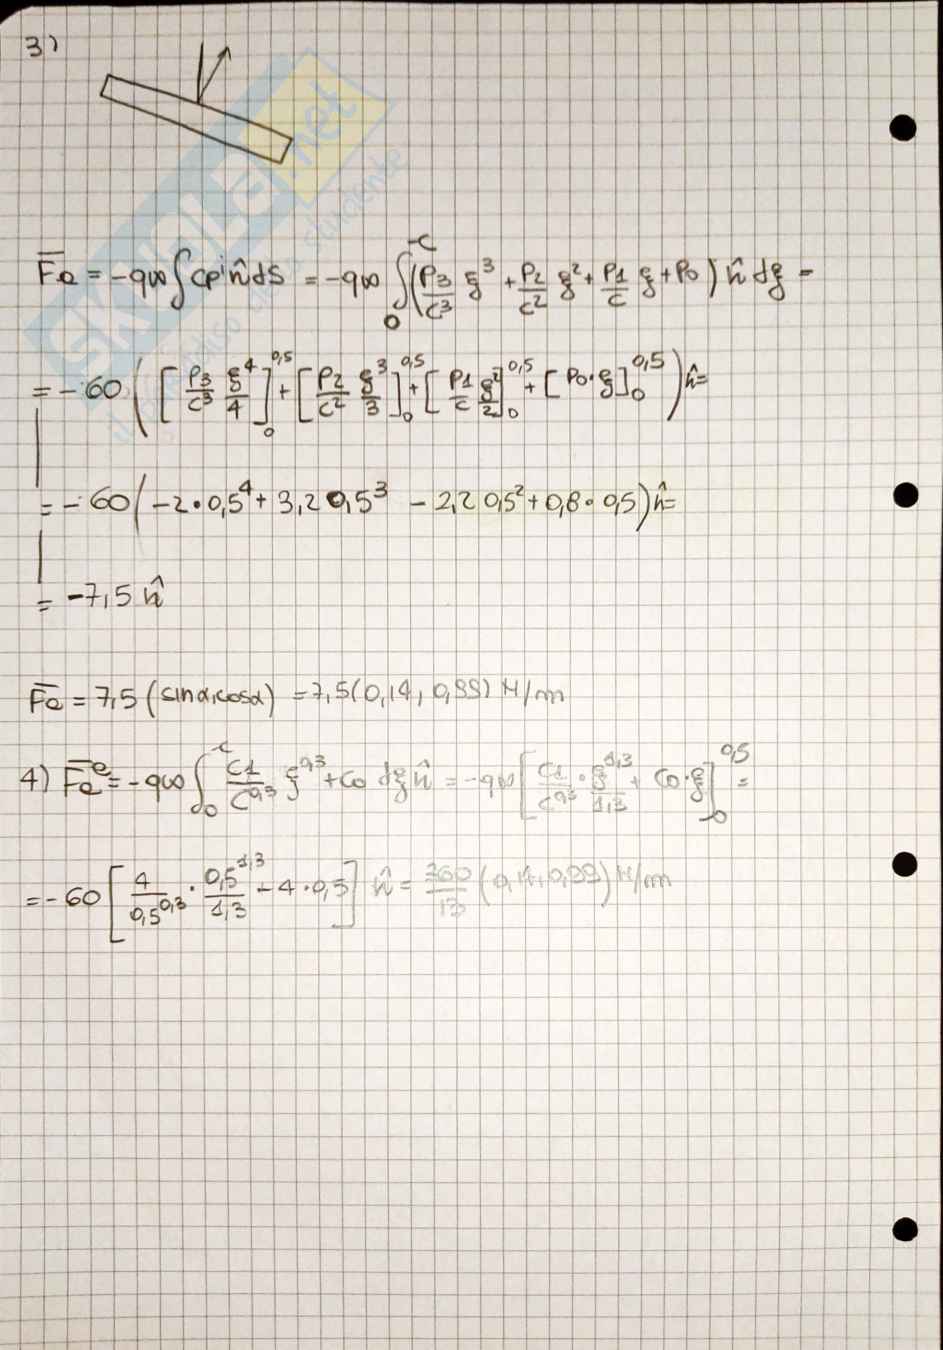 3)
SKUOLA.net
F̄a = -q∞ ∫ cpⁱ n̂ ds = -q∞ ∫₀^c (P3/c³ ξ³ + P2/c² ξ² + P1/c ξ + P0) n̂ dξ =
= -60 ([P3/c³ ξ⁴/4]₀^0,5 + [P2/c² ξ³/3]₀^0,5 + [P1/c ξ²/2]₀^0,5 + [P0·ξ]₀^0,5) n̂ =
= -60 (-2·0,5⁴ + 3,2 0,5³ - 2,2 0,5² + 0,8·0,5) n̂ =
= -7,5 n̂
F̄a = 7,5 (sinα, cosα) = 7,5 (0,14, 0,99) N/m
4) F̄aᵉ = -q∞ ∫₀^c C1/c^0,3 ξ^0,3 + C0 dξ n̂ = -q∞ [C1/c^0,3 · ξ^1,3/1,3 + C0·ξ]₀^0,5 =
= -60 [4/0,5^0,3 · 0,5^1,3/1,3 - 4·0,5] n̂ = 360/13 (0,14, 0,99) N/m